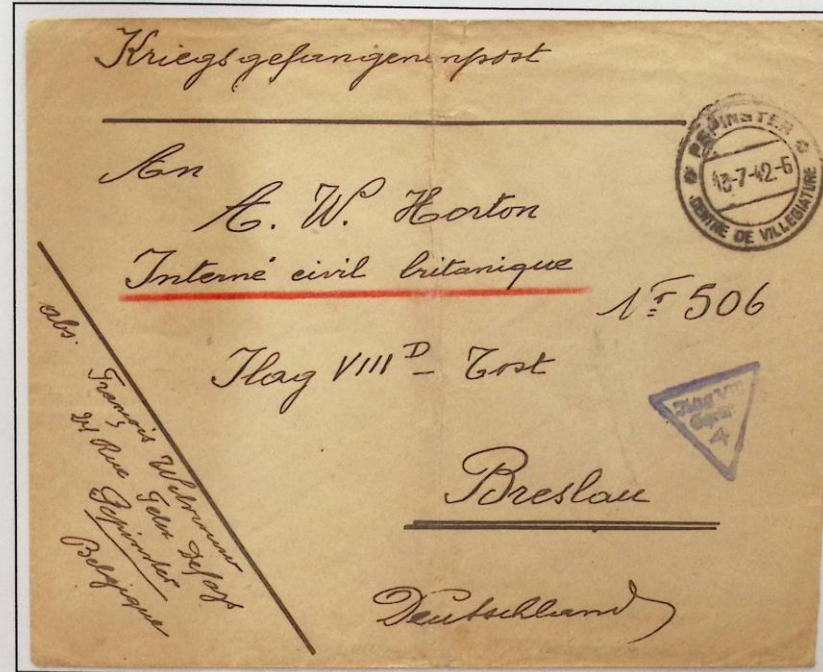 Kriegsgefangenenpost
PEPINSTER
13-7-42-6
CENTRE DE VILLEGIATURE
An
A. W. Horton
Interné civil britanique
Nr 506
Ilag VIII D - Tost
Ilag VIII
Geprüft
4
Breslau
Deutschland
abs. François
Rue
Pepinster
Belgique